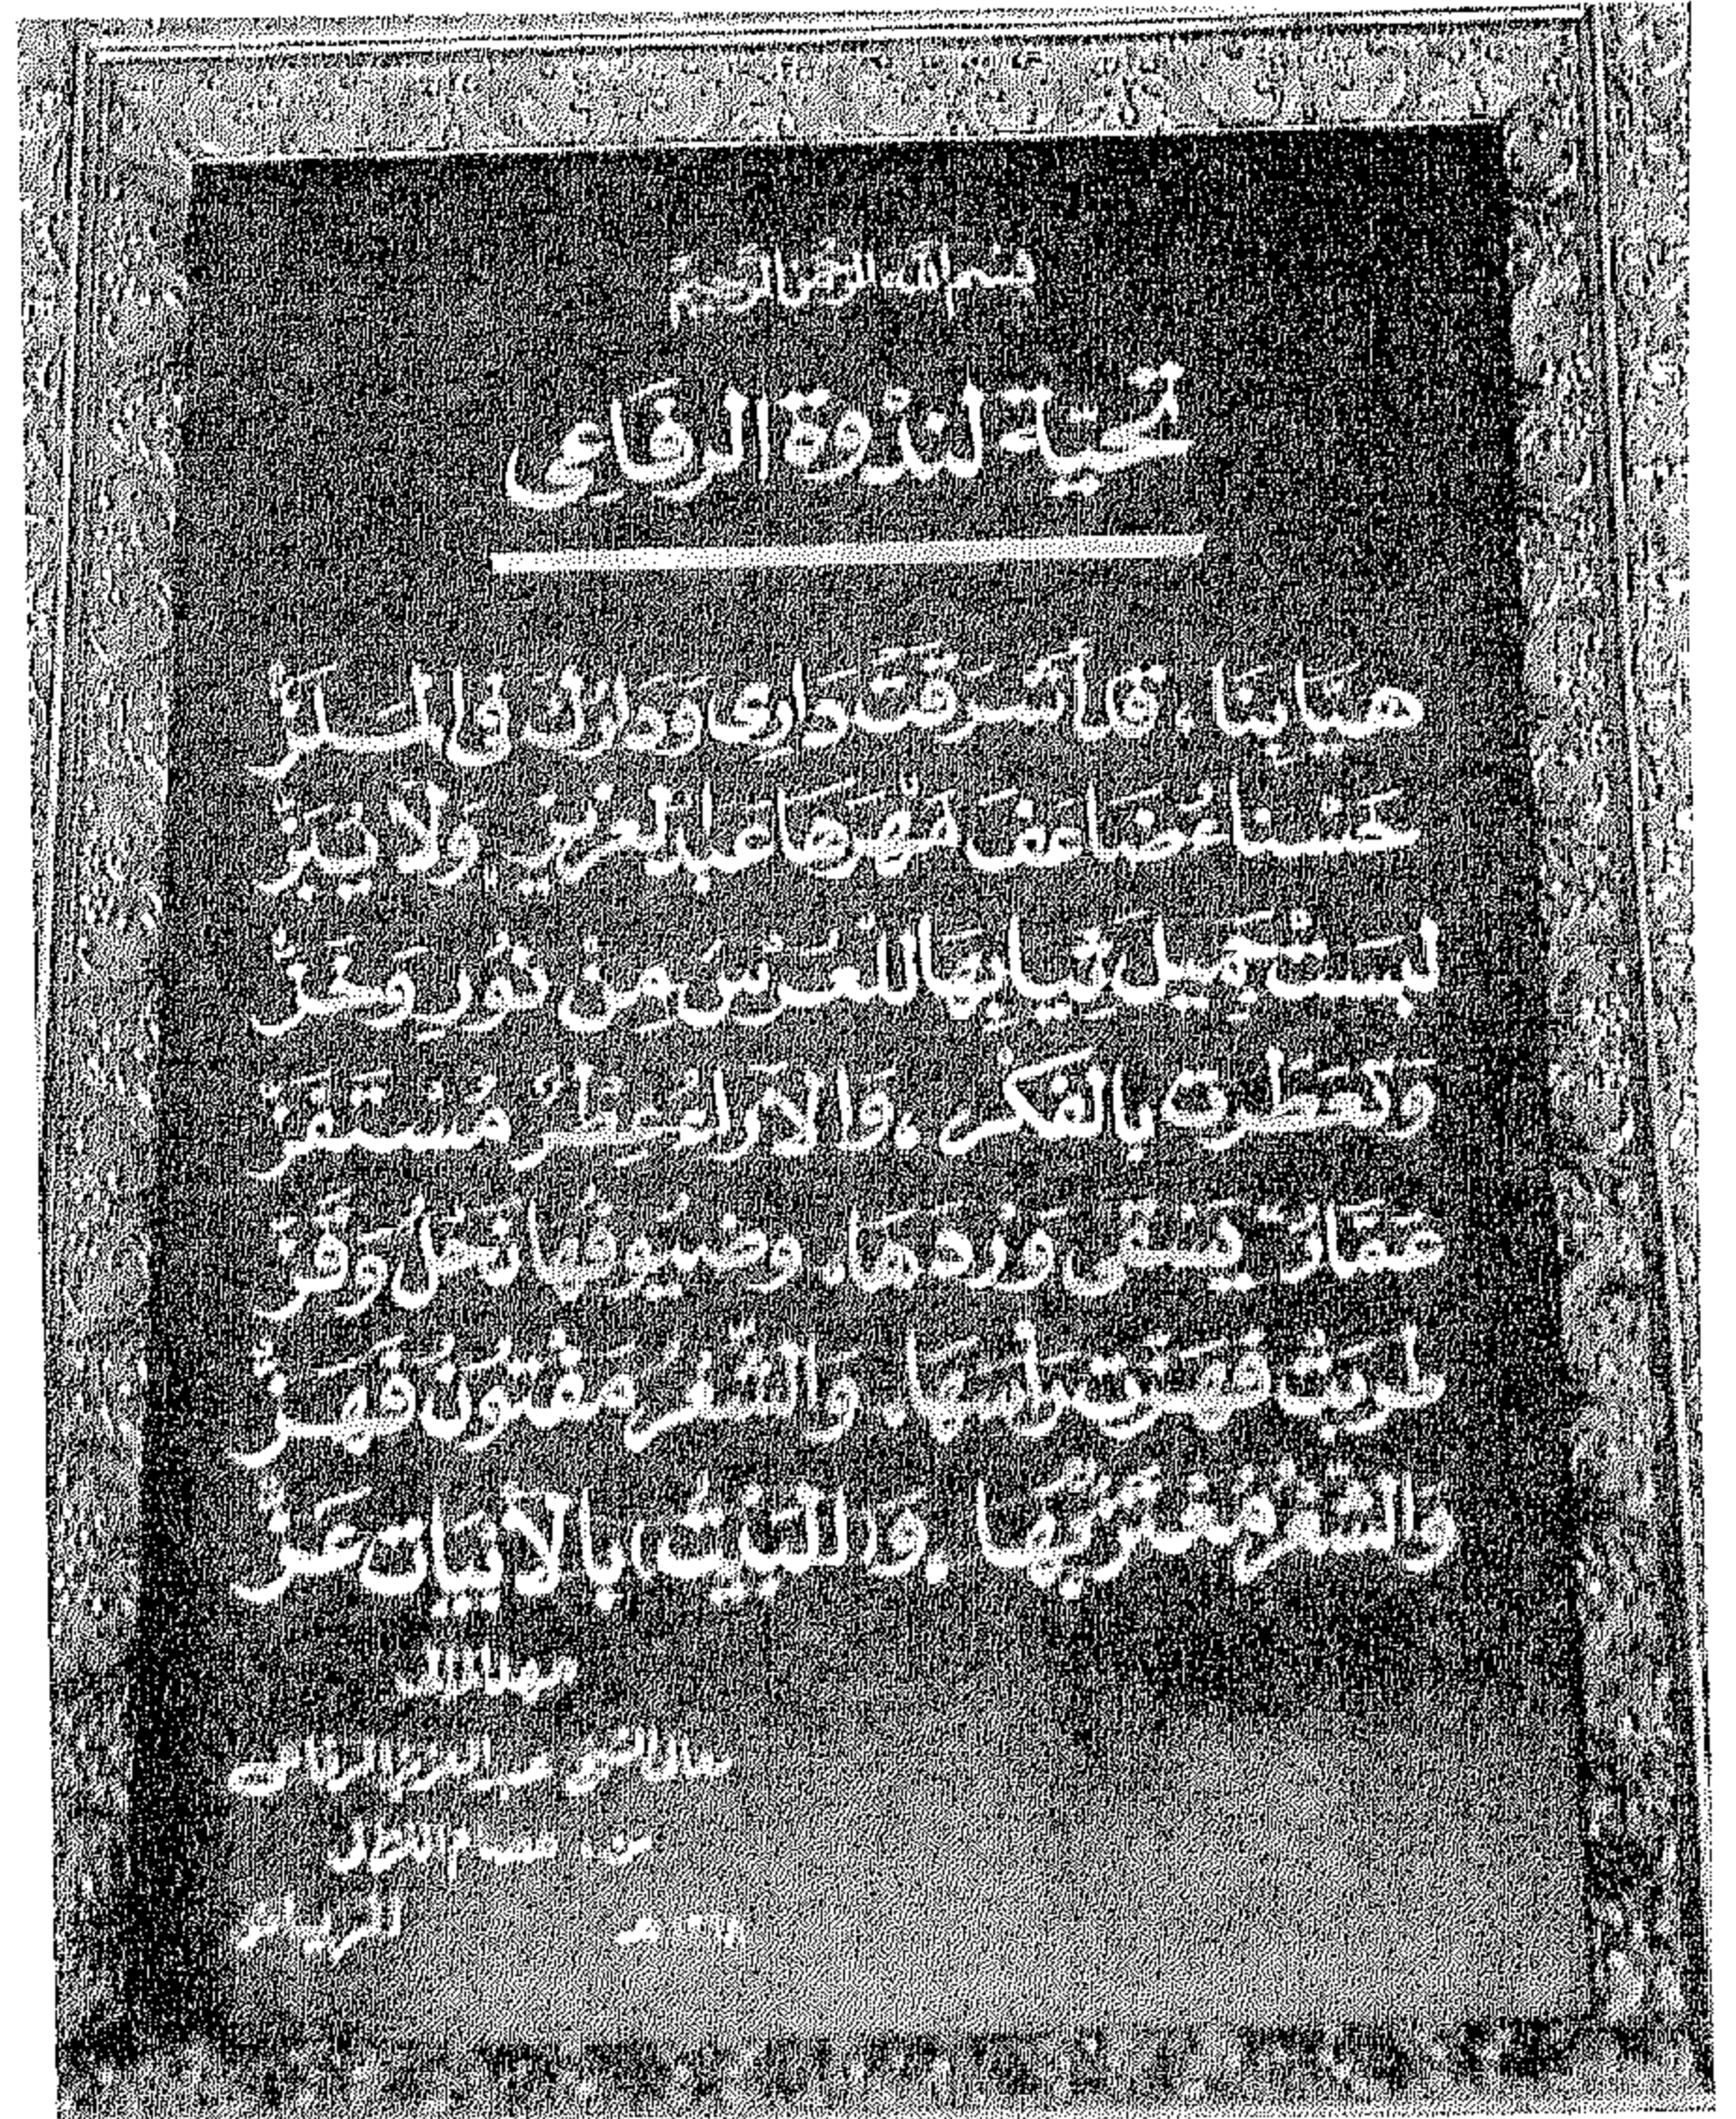 بسم الله الرحمن الرحيم
تحيّة لندوة الرفاعي
هيّا بِنا، قد أشرقَت داري وَدارُك في الملَزّ
حَسْناءُ ضاعفَ مَهْرَها عبدُ العزيز، وَلا يُبَزّ
لبسَتْ جَميلَ ثيابِها للعُرْسِ مِنْ نُورٍ وَخَزّ
وَتعَطّرت بالفكرْ، وَالآراءُ عِطرٌ مُستفَزّ
عَقّارُ يَسقي وَردَها. وضيُوفُها نَحْلٌ وَقَزّ
طربَتْ فهَزّت رأسَها. وَالشّعْرُ مَفتُونٌ فَهَزّ
وَالشعْرُ مُعتَزٌّ بِهَا. وَ(البَيْتُ) بالأبياتِ عَزّ
مهداة إلى
معالي الشيخ عبد العزيز الرفاعي
من: عصام الغزالي
الرياض هـ